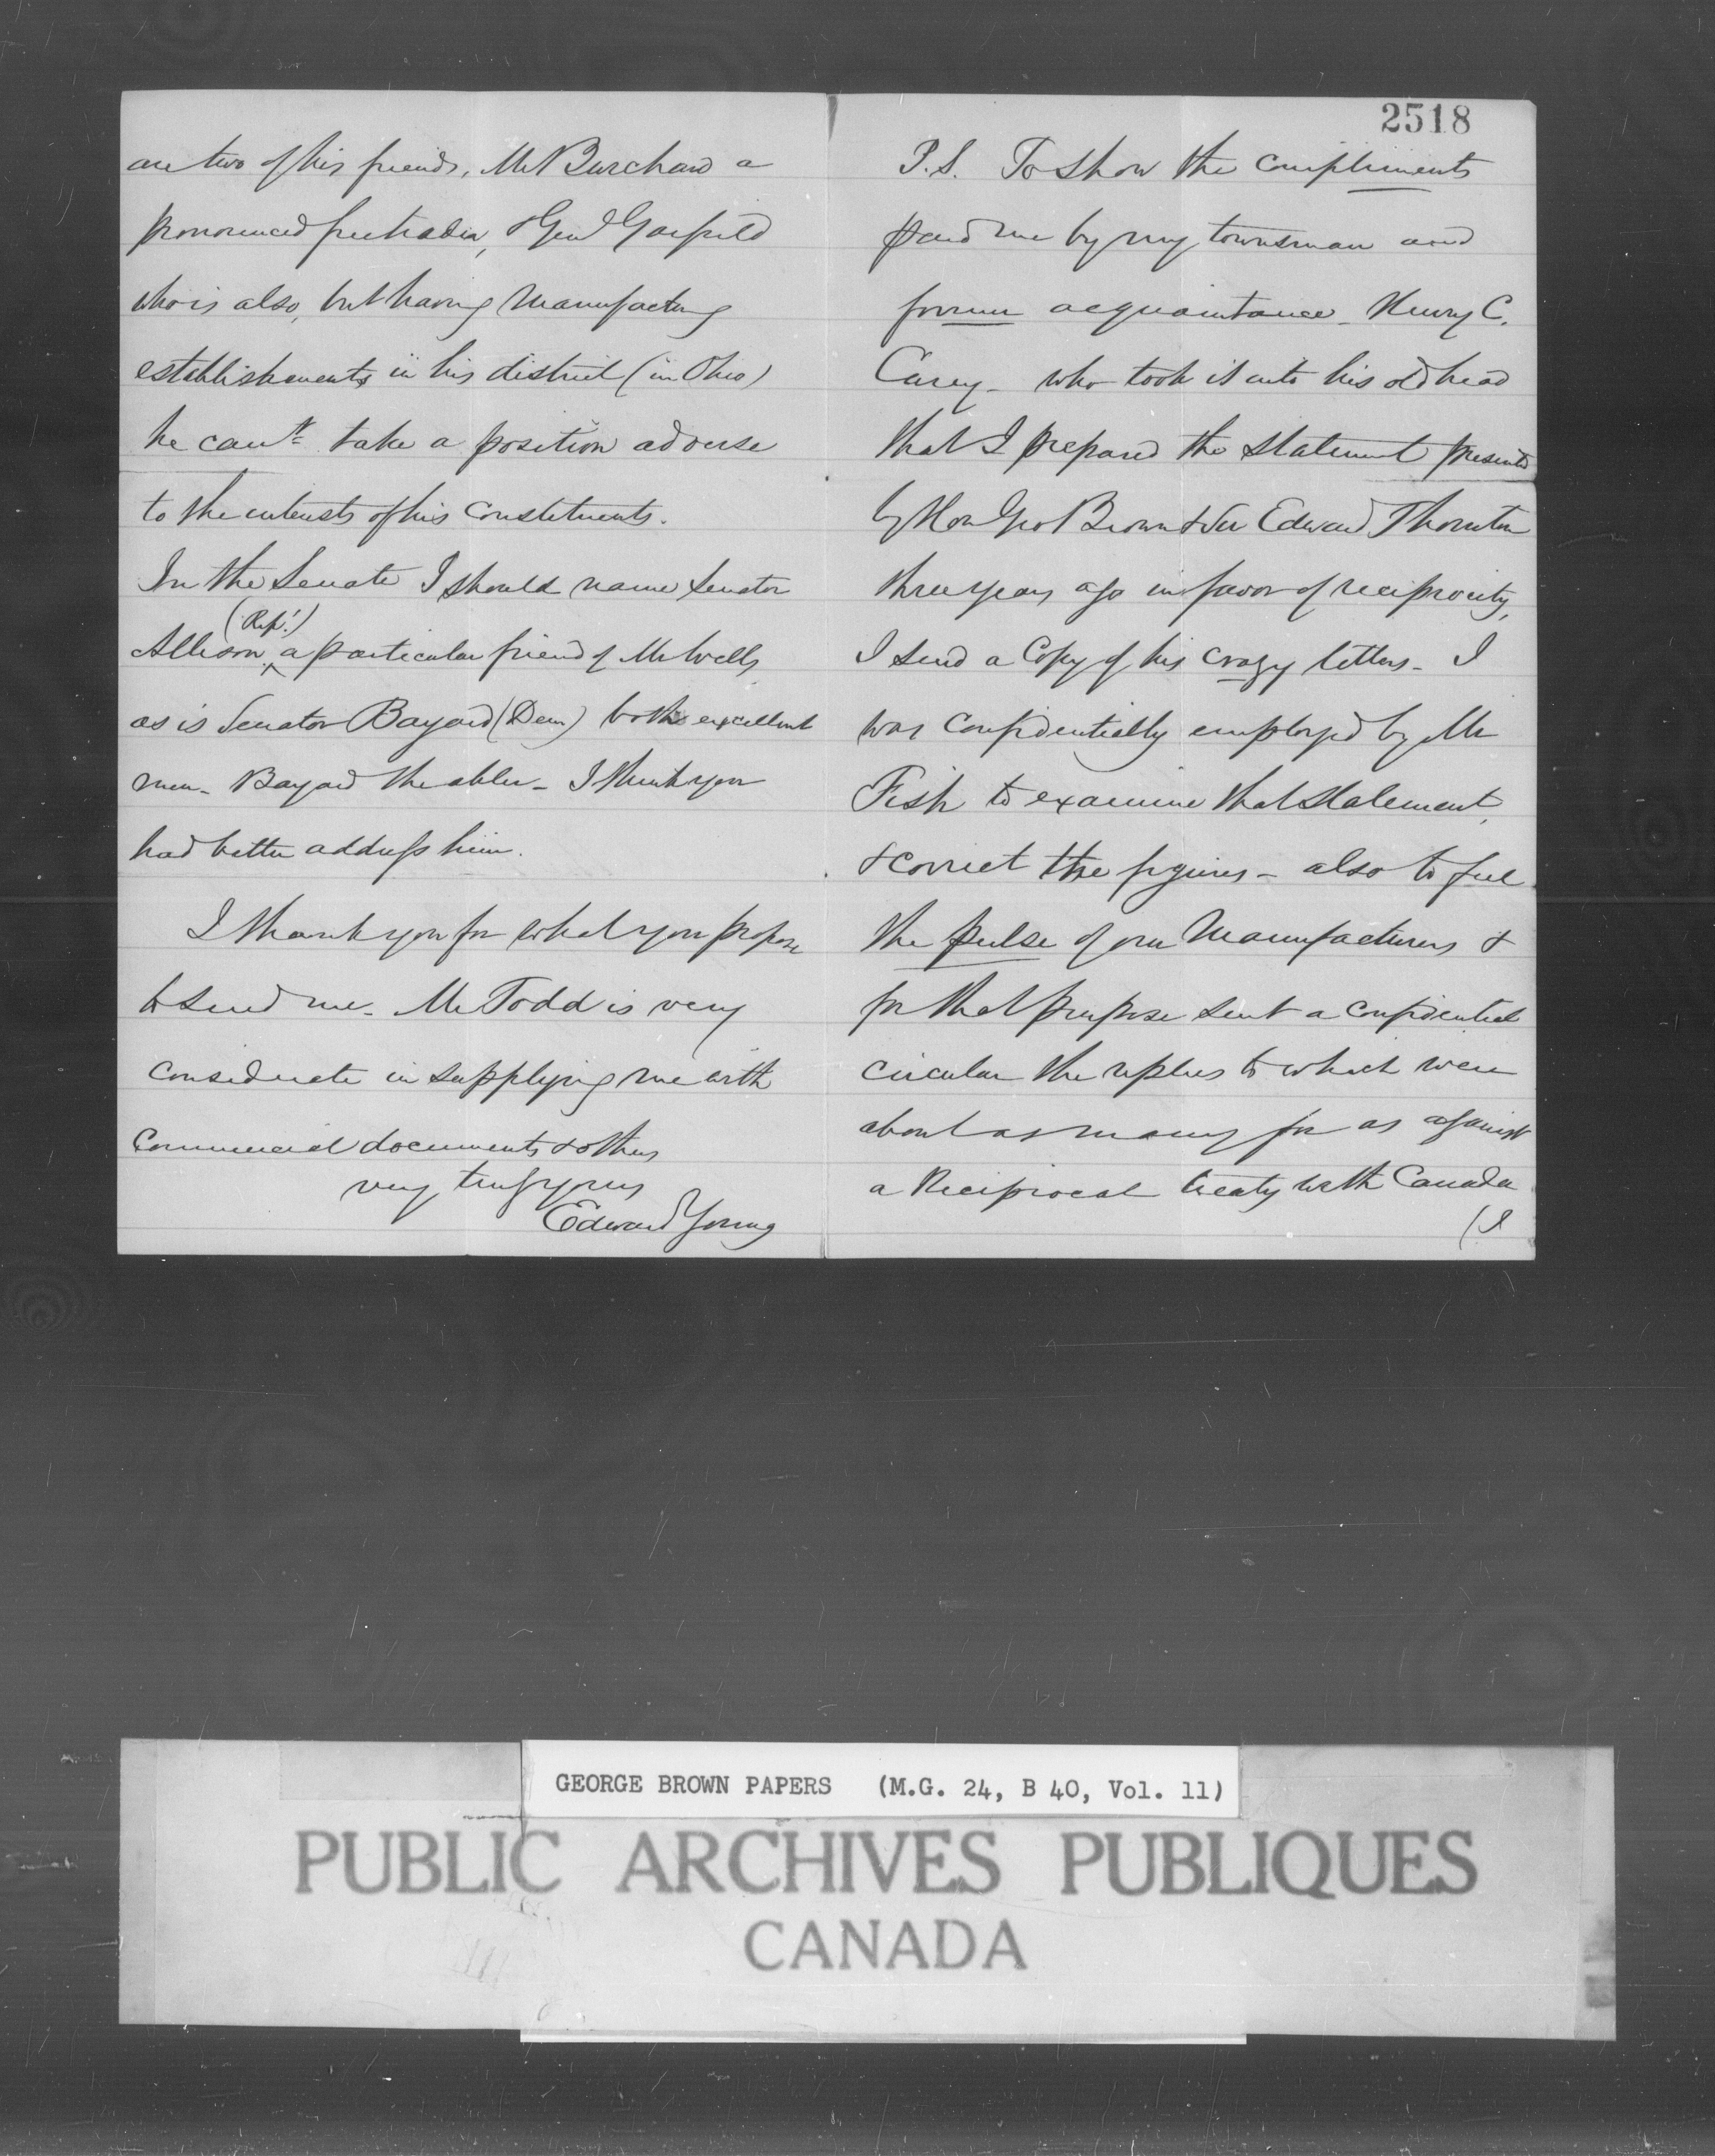 are two of his friends, Mr Burchard a
pronounced freetrader, & Genl Garfield
who is also, but having manufacturing
establishments in his district (in Ohio)
he can't take a position adverse
to the interests of his constituents.
In the Senate I should name Senator
(Rep!)
Allison a particular friend of Mr Wells
as is Senator Bayard (Dem) both excellent
men - Bayard the abler - I think you
had better address him.
I thank you for what you propose
to send me - Mr Todd is very
considerate in supplying me with
Commercial documents & others
very truly yours
Edward Young
2518
P.S. To show the compliments
paid me by my townsman and
former acquaintance - Henry C.
Carey - who took it into his old head
that I prepared the statement presented
by Hon Geo Brown & Sir Edward Thornton
three years ago in favor of reciprocity,
I send a Copy of his crazy letters - I
was confidentially employed by Mr
Fish to examine that statement,
& correct the figures - also to feel
the pulse of our Manufacturers &
for that purpose sent a confidential
circular the replies to which were
about as many for as against
a Reciprocal treaty with Canada
(I
GEORGE BROWN PAPERS (M.G. 24, B 40, Vol. 11)
PUBLIC ARCHIVES PUBLIQUES
CANADA